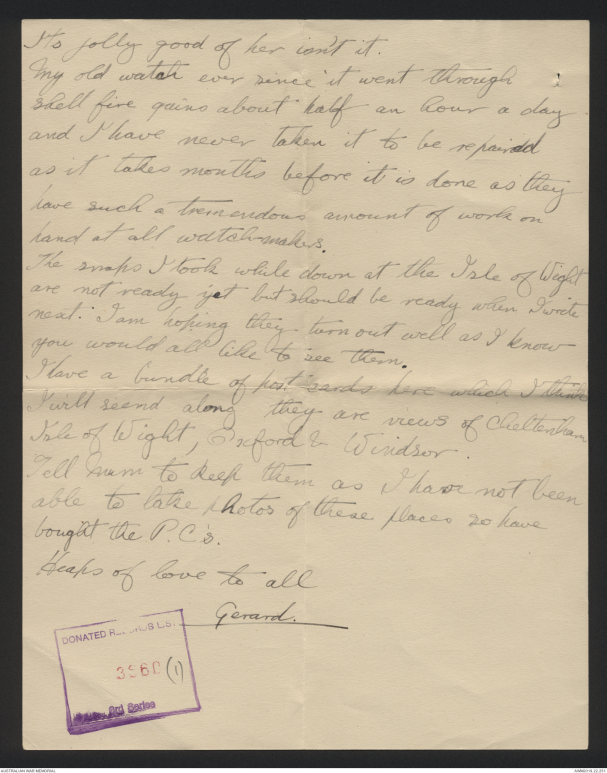 Its jolly good of her isn't it.
My old watch ever since it went through
shell fire gains about half an hour a day
and I have never taken it to be repaired
as it takes months before it is done as they
have such a tremendous amount of work on
hand at all watch-makers.
The snaps I took while down at the Isle of Wight
are not ready yet but should be ready when I write
next. I am hoping they turn out well as I know
you would all like to see them.
I have a bundle of post cards here which I think
I will seend along they are views of Cheltenham
Isle of Wight, Oxford & Windsor.
Tell Mum to keep them as I have not been
able to take photos of these places so have
bought the P.C's.
Heaps of love to all
Gerard.
DONATED RECORDS LIST
3960 (1)
3rd Series
AUSTRALIAN WAR MEMORIAL